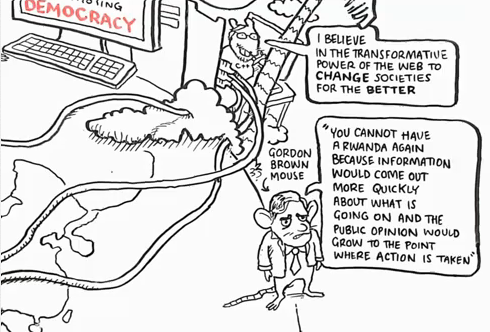 DEMOCRACY
C++
I BELIEVE
IN THE TRANSFORMATIVE
POWER OF THE WEB TO
CHANGE SOCIETIES
FOR THE BETTER
GORDON
BROWN
MOUSE
"YOU CANNOT HAVE
A RWANDA AGAIN
BECAUSE INFORMATION
WOULD COME OUT
MORE QUICKLY
ABOUT WHAT IS
GOING ON AND THE
PUBLIC OPINION WOULD
GROW TO THE POINT
WHERE ACTION IS TAKEN"